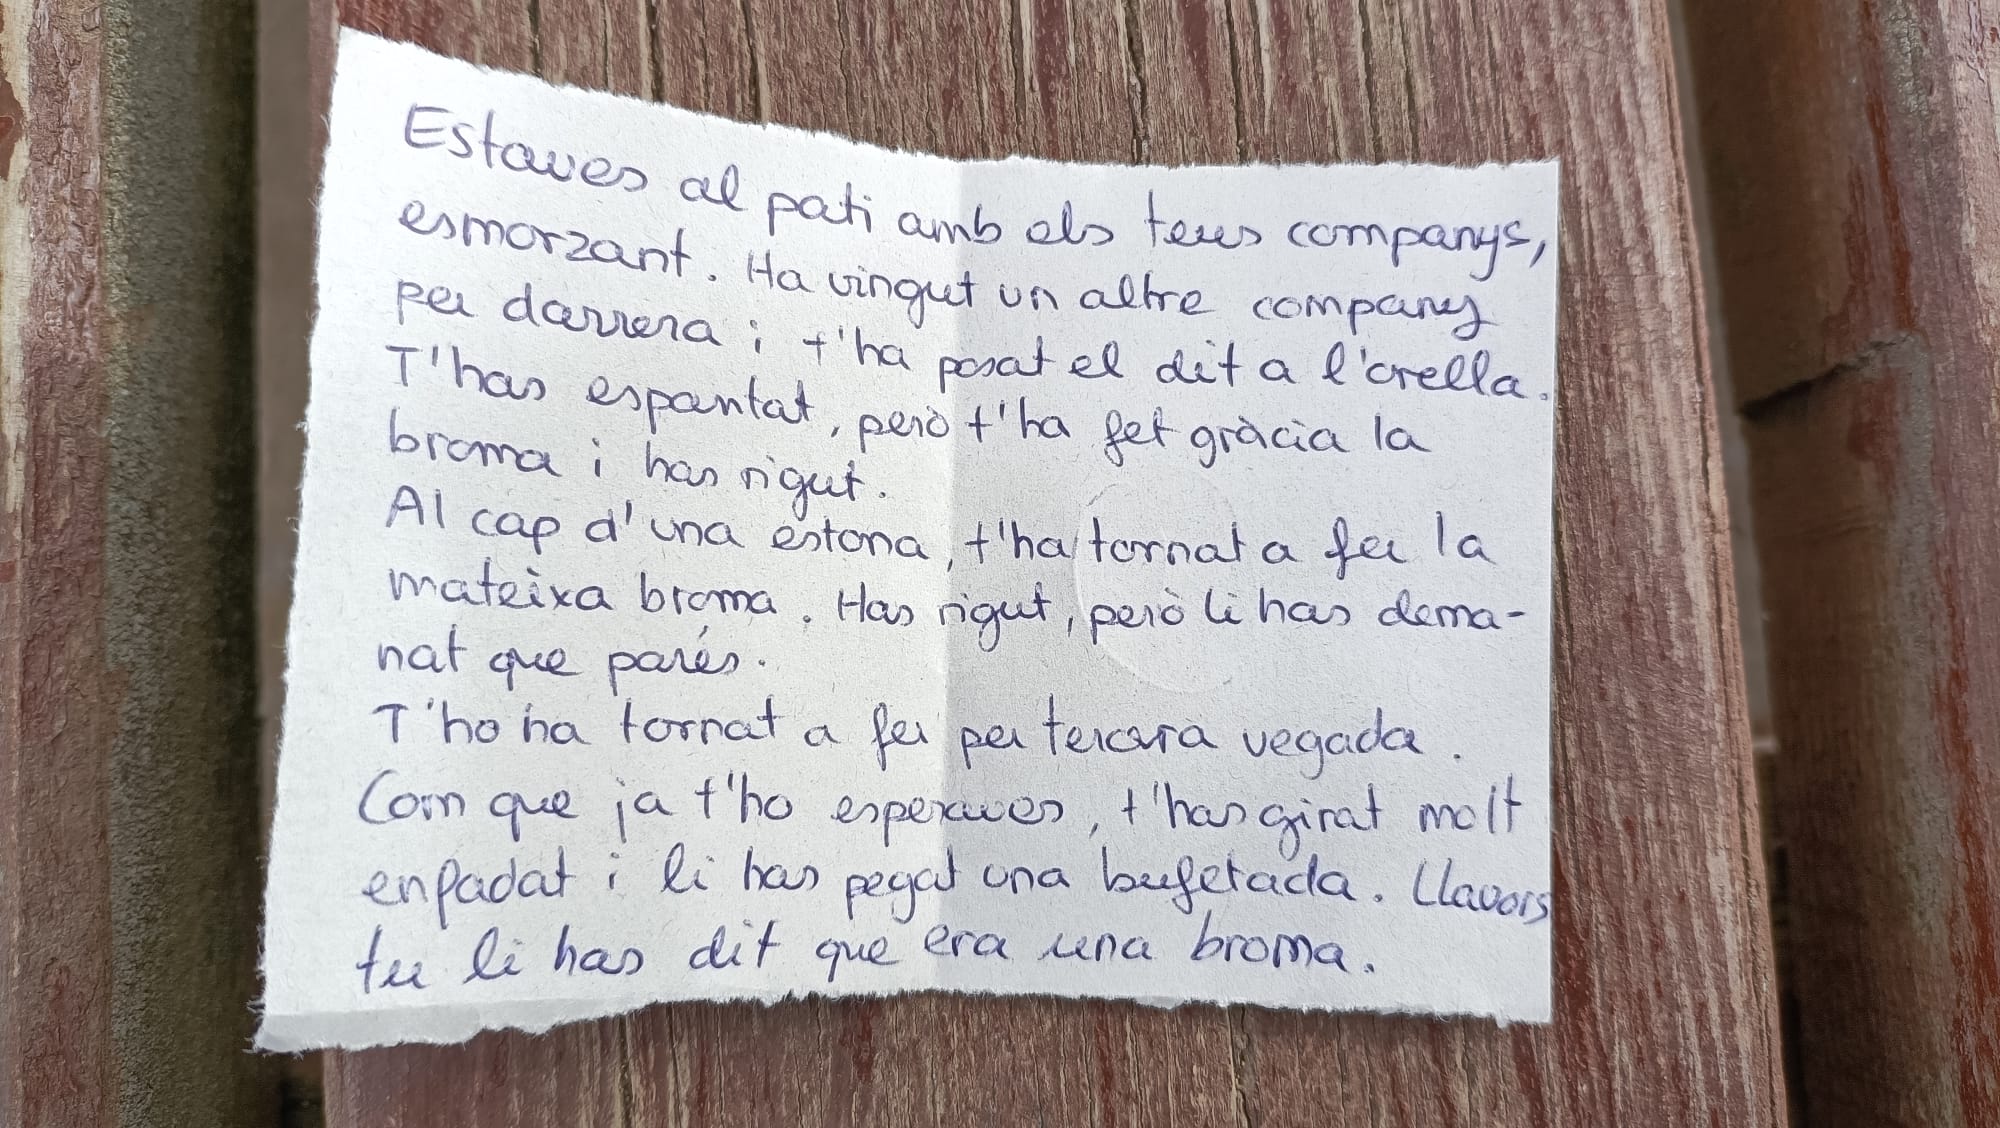 Estaves al pati amb els teus companys,
esmorzant. Ha vingut un altre company
per darrera i t'ha posat el dit a l'orella.
T'has espantat, però t'ha fet gràcia la
broma i has rigut.
Al cap d'una estona, t'ha tornat a fer la
mateixa broma. Has rigut, però li has dema-
nat que parés.
T'ho ha tornat a fer per tercera vegada.
Com que ja t'ho esperaves, t'has girat molt
enfadat i li has pegat una bufetada. Llavors
tu li has dit que era una broma.